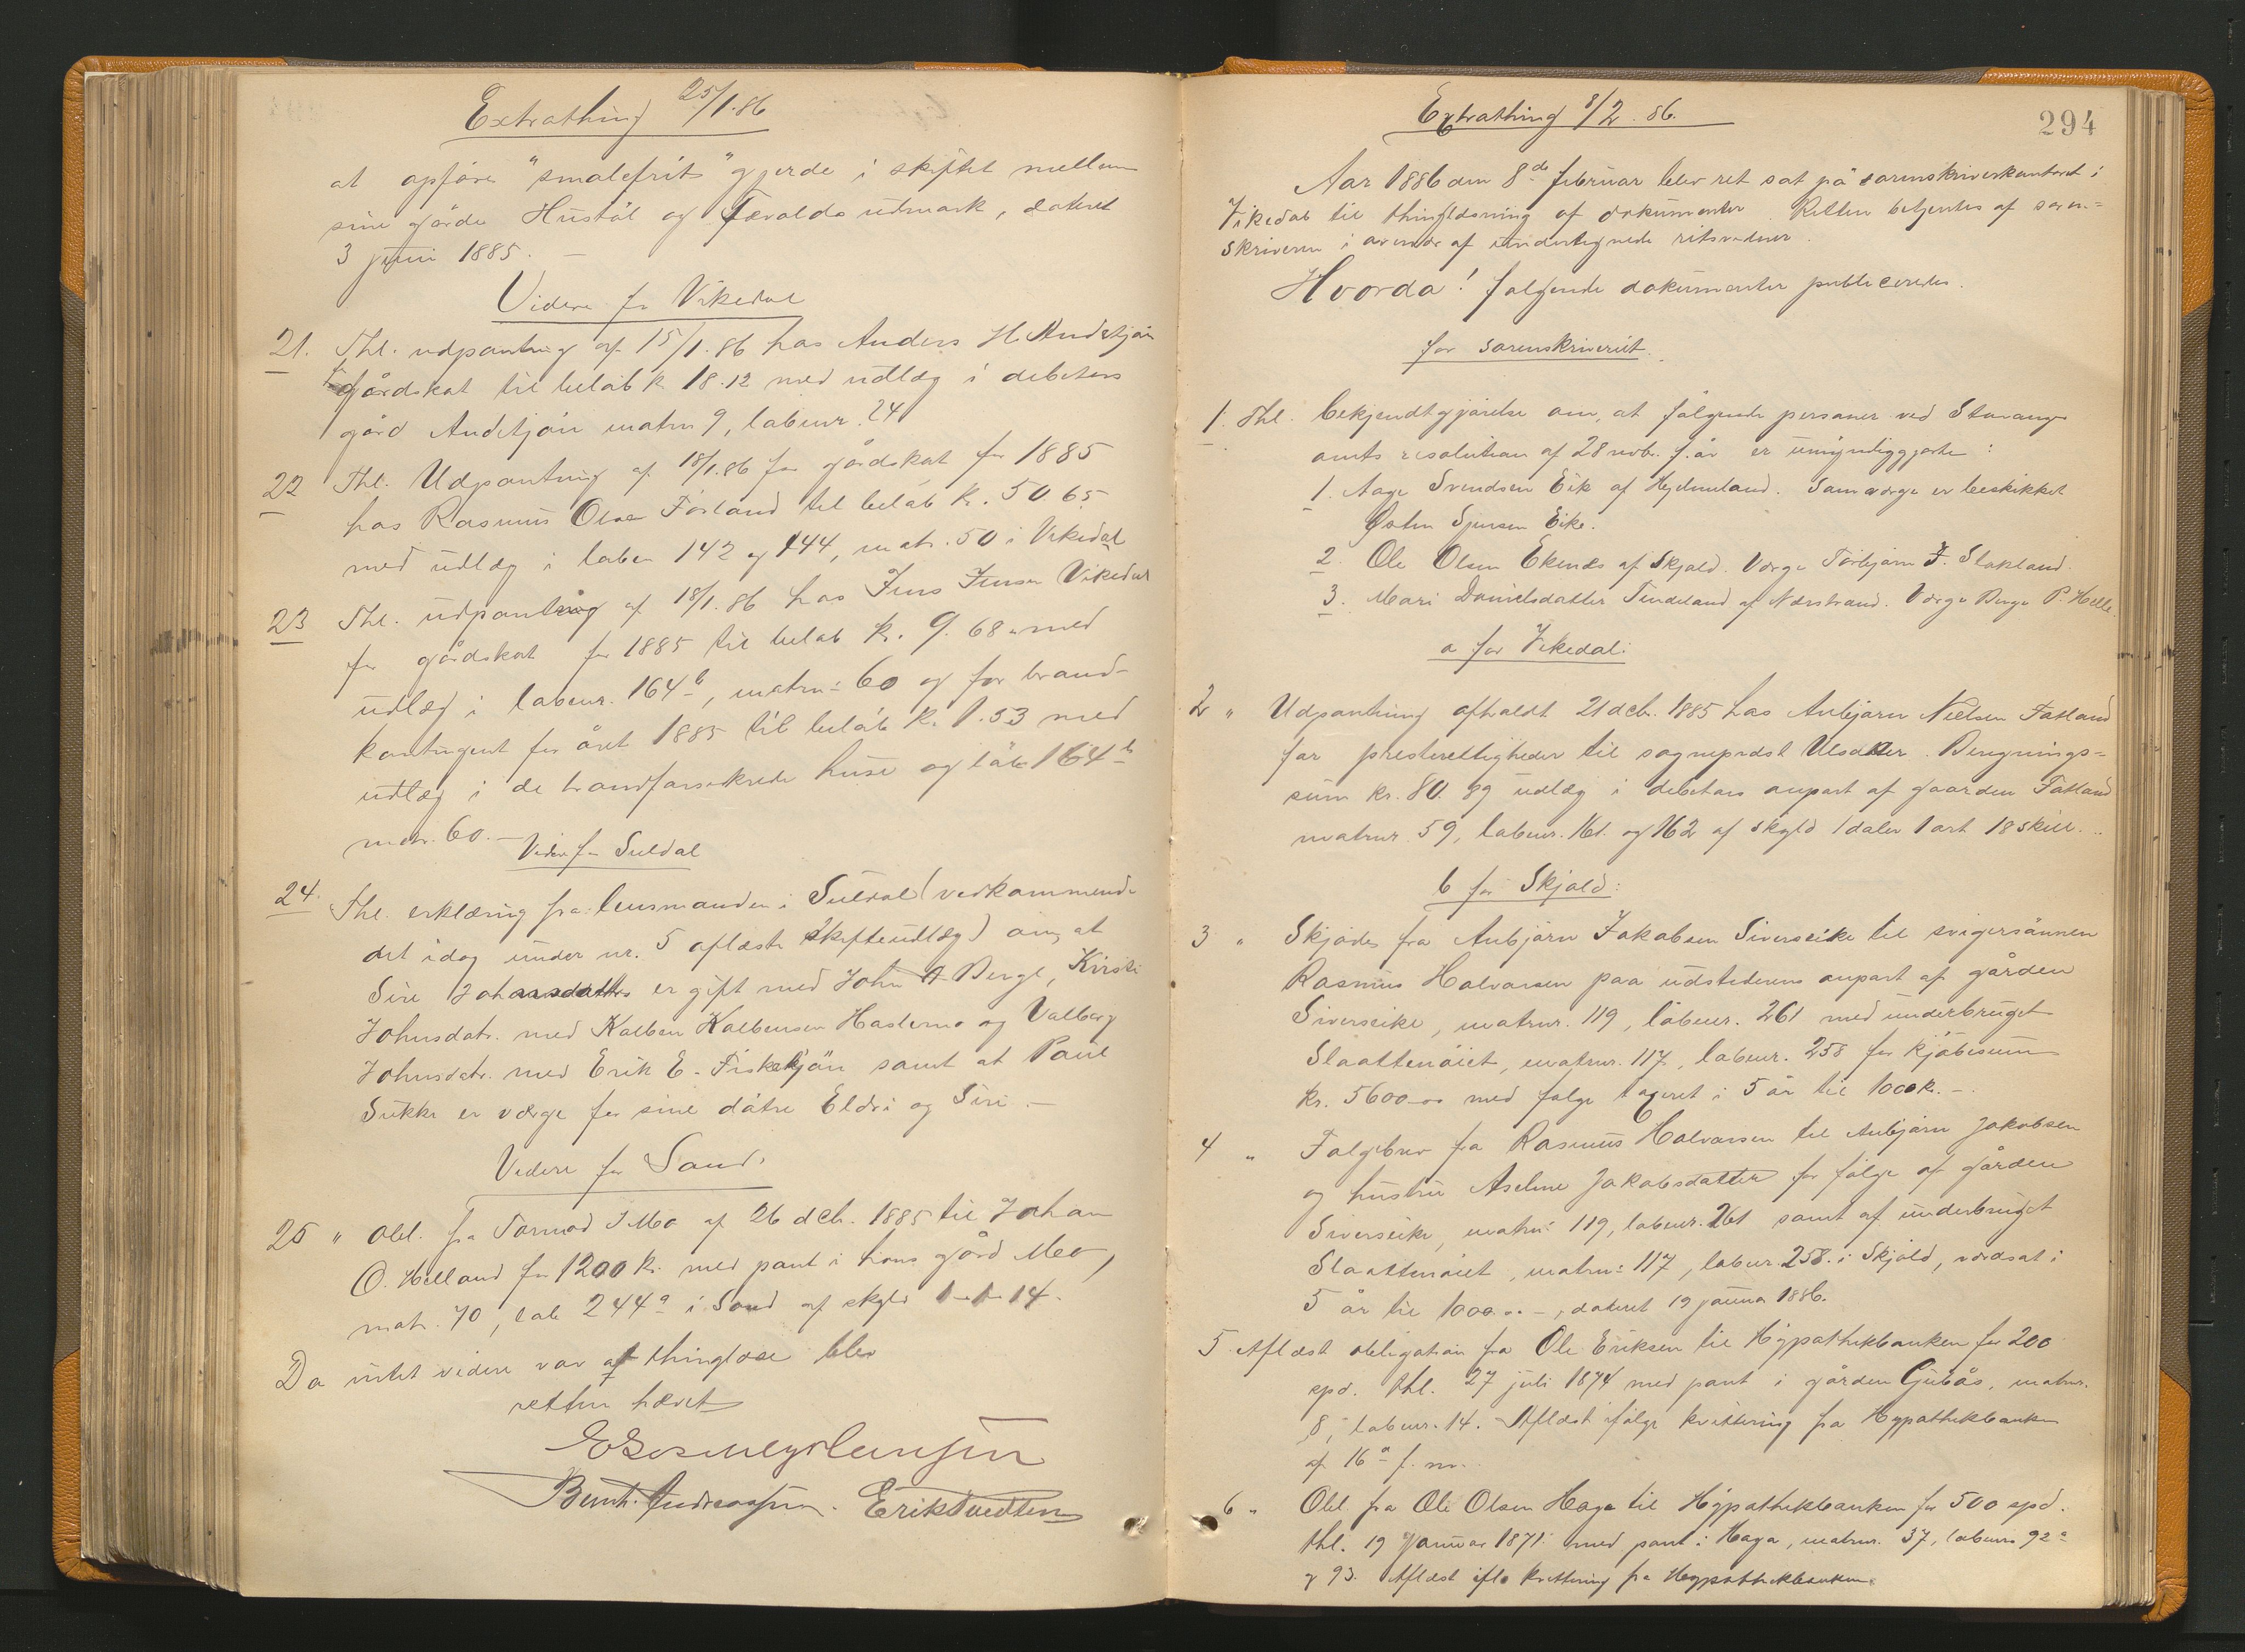 Extrathing 25/1.86
at opføre "smalefrit" gjerde i skiftet mellem
sine gårde Hustøl og Tævalds udmark, dateret
3 juni 1885. –
Videre for Vikedal
21. Thl. udpantning af 15/1.86 hos Anders H. Andstjön
gårdskat til beløb k. 18.12 med udlæg i debitors
gård Andstjön matrn 9, løbenr. 24
22 Thl. Udpantning af 18/1.86 for gårdskat for 1885
hos Rasmus Olsen Førland til beløb k. 50 65
med udlæg i løben 142 og 144, matr. 50 i Vikedal
23 Thl. udpantning af 18/1.86 hos Jens Jensen Vikedal
for gårdskat for 1885 til beløb k. 9.68 med
udlæg i løbenr. 164 b, matrn: 60 og for brand-
kontingent for året 1885 til beløb k. 1.53 med
udlæg i de brandforsikrede huse og løb 164 b
matr. 60. –
Videre for Suldal
24. Thl. erklæring fra lensmanden i Suldal (vedkommende
det idag under nr. 5 aflæste skifteudlæg) om, at
Siri Johnsdatter er gift med John A Berge, Kirsti
Johnsdatr. med Kolben Kolbensen Hastemo og Valborg
Johnsdatr. med Erik E. Fisketjön samt at Paul
Sukke er værge for sine døtre Eldri og Siri. –
Videre for Sand.
25 " Obl. fra Tormod T Mo af 26 dcb. 1885 til Johan
O. Helland for 1200 k. med pant i hans gård Mo,
matr. 70, løb 244 a i Sand af skyld 1-1-14.
Da intet videre var at thinglæse blev
retten hævet
Bernt. Andreassen. Erik Tvedten
Extrathing 8/2.86.
294
Aar 1886 den 8de februar blev ret sat på sorenskriverkontoret i
Vikedal til thinglæsning af dokumenter. Retten betjentes af soren=
skriveren i overvær af undertegnede retsvidner.
Hvorda! følgende dokumenter publiceredes.
for sorenskriveriet.
1. Thl. bekjendtgjørelse om, at følgende personer ved Stavanger
amts resolution af 28 novbr. f. år er umyndiggjorte:
1. Aage Svendsen Eik af Hjelmeland. Som værge er beskikket
Østen Sjursen Eike.
2. Ole Olsen Ekenæs af Skjold. Værge Torbjørn J. Stakland.
3. Mari Danielsdatter Tindeland af Nærstrand. Værge Berge P. Helle.
a for Vikedal:
2 " Udpantning afholdt 21 dcb. 1885 hos Anbjørn Nielsen Fatland
for presterettigheder til sogneprest Ulsaker. Beregnings=
sum kr. 80. 89 udlæg i debitors anpart af gaarden Fatland
matrnr. 59, løbenr. 161. og 162 af skyld 1 daler 1 ort 18 skill. ..
b for Skjold:
3 " Skjøde fra Anbjørn Jakobsen Siverseike til svigersønnen
Rasmus Halvorsen paa udstederens anpart af gården
Siverseike, matrnr. 119, løbenr. 261 med underbruget
Slaattenøiet, matrnr. 117, løbenr. 258 for kjøbesum
kr. 5600-00 med følge taxeret i 5 år til 1000 k. –
4 " Følgebrev fra Rasmus Halvorsen til Anbjørn Jakobsen
og hustru Aseline Jakobsdatter for følge af gården
Siverseike, matrn: 119, løbenr. 261 samt af underbruget
Slaattenøiet, matrn: 117, løbenr. 258. i Skjold, værdsat i
5 år til 1000.00 –, dateret 19 januar 1886.
5 Aflæst obligation fra Ole Eriksen til Hypothekbanken for 200
spd. thl. 27 juli 1874 med pant i gården Gjuås, matrnr.
8, løbenr. 14. – Aflæst ifølge kvittering fra Hypothekbanken
af 16 f. m.
6 " Obl. fra Ole Olsen Haga til Hypothekbanken for 500 spd.
thl. 19 januar 1871. med pant i Haga, matrnr. 37, løbenr. 92 a
og 93. Aflæst ifle kvittering fra Hypothekbanken.